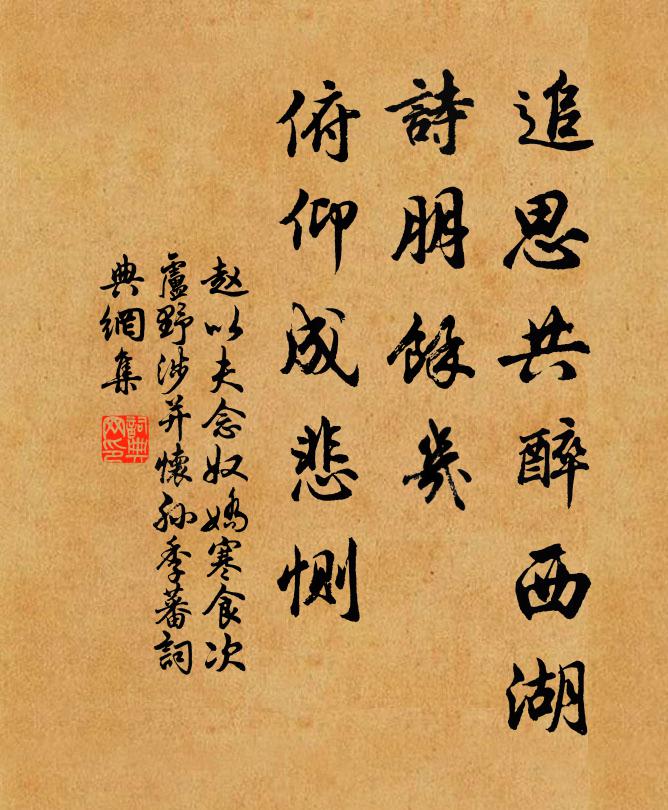 追思共醉西湖
詩朋餘幾
俯仰成悲惻
赵以夫念奴嬌寒食次
盧野涉并懷孙季蕃詞
典網集
詞典
网印